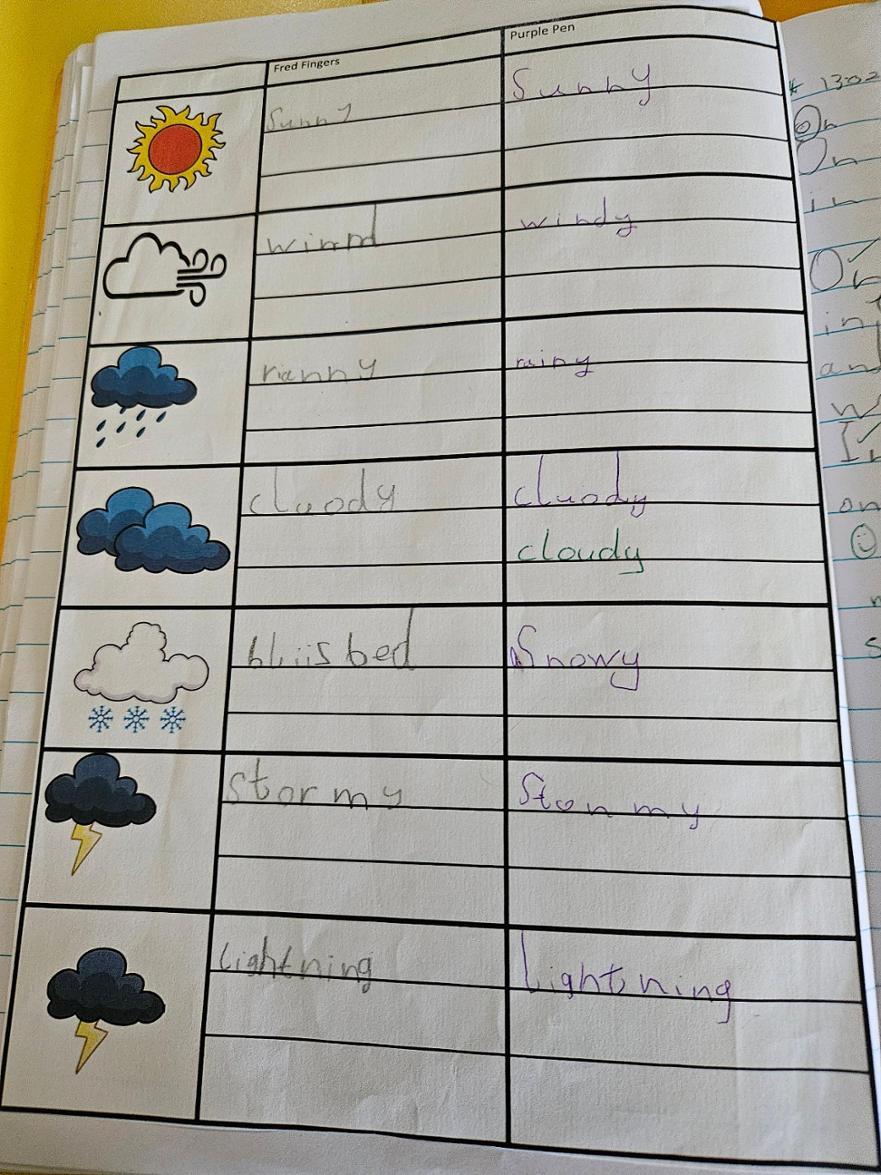 Fred Fingers Purple Pen
Sunny Sunny
winnd windy
rianny rainy
cluody cluody
cloudy
bliisbed Snowy
stormy Stonmy
lightning Lightning
On
On
in
On
in
and
w
In
on